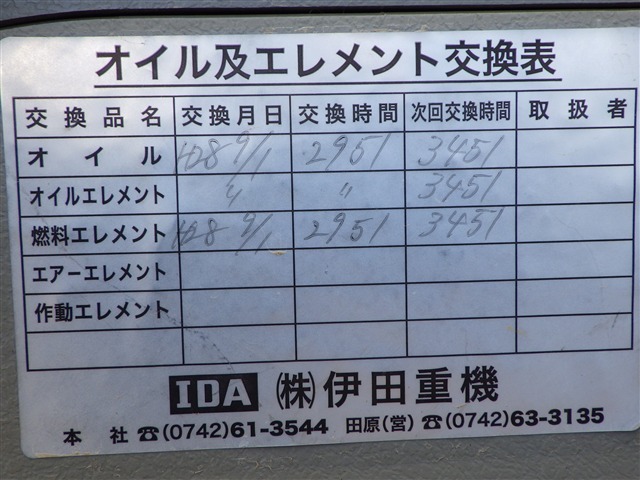 オイル及エレメント交換表
交換品名 交換月日 交換時間 次回交換時間 取扱者
オイル H28 9/1 2951 3451
オイルエレメント 〃 〃 3451
燃料エレメント H28 9/1 2951 3451
エアーエレメント
作動エレメント
IDA ㈱伊田重機
本社☎(0742)61-3544 田原(営)☎(0742)63-3135